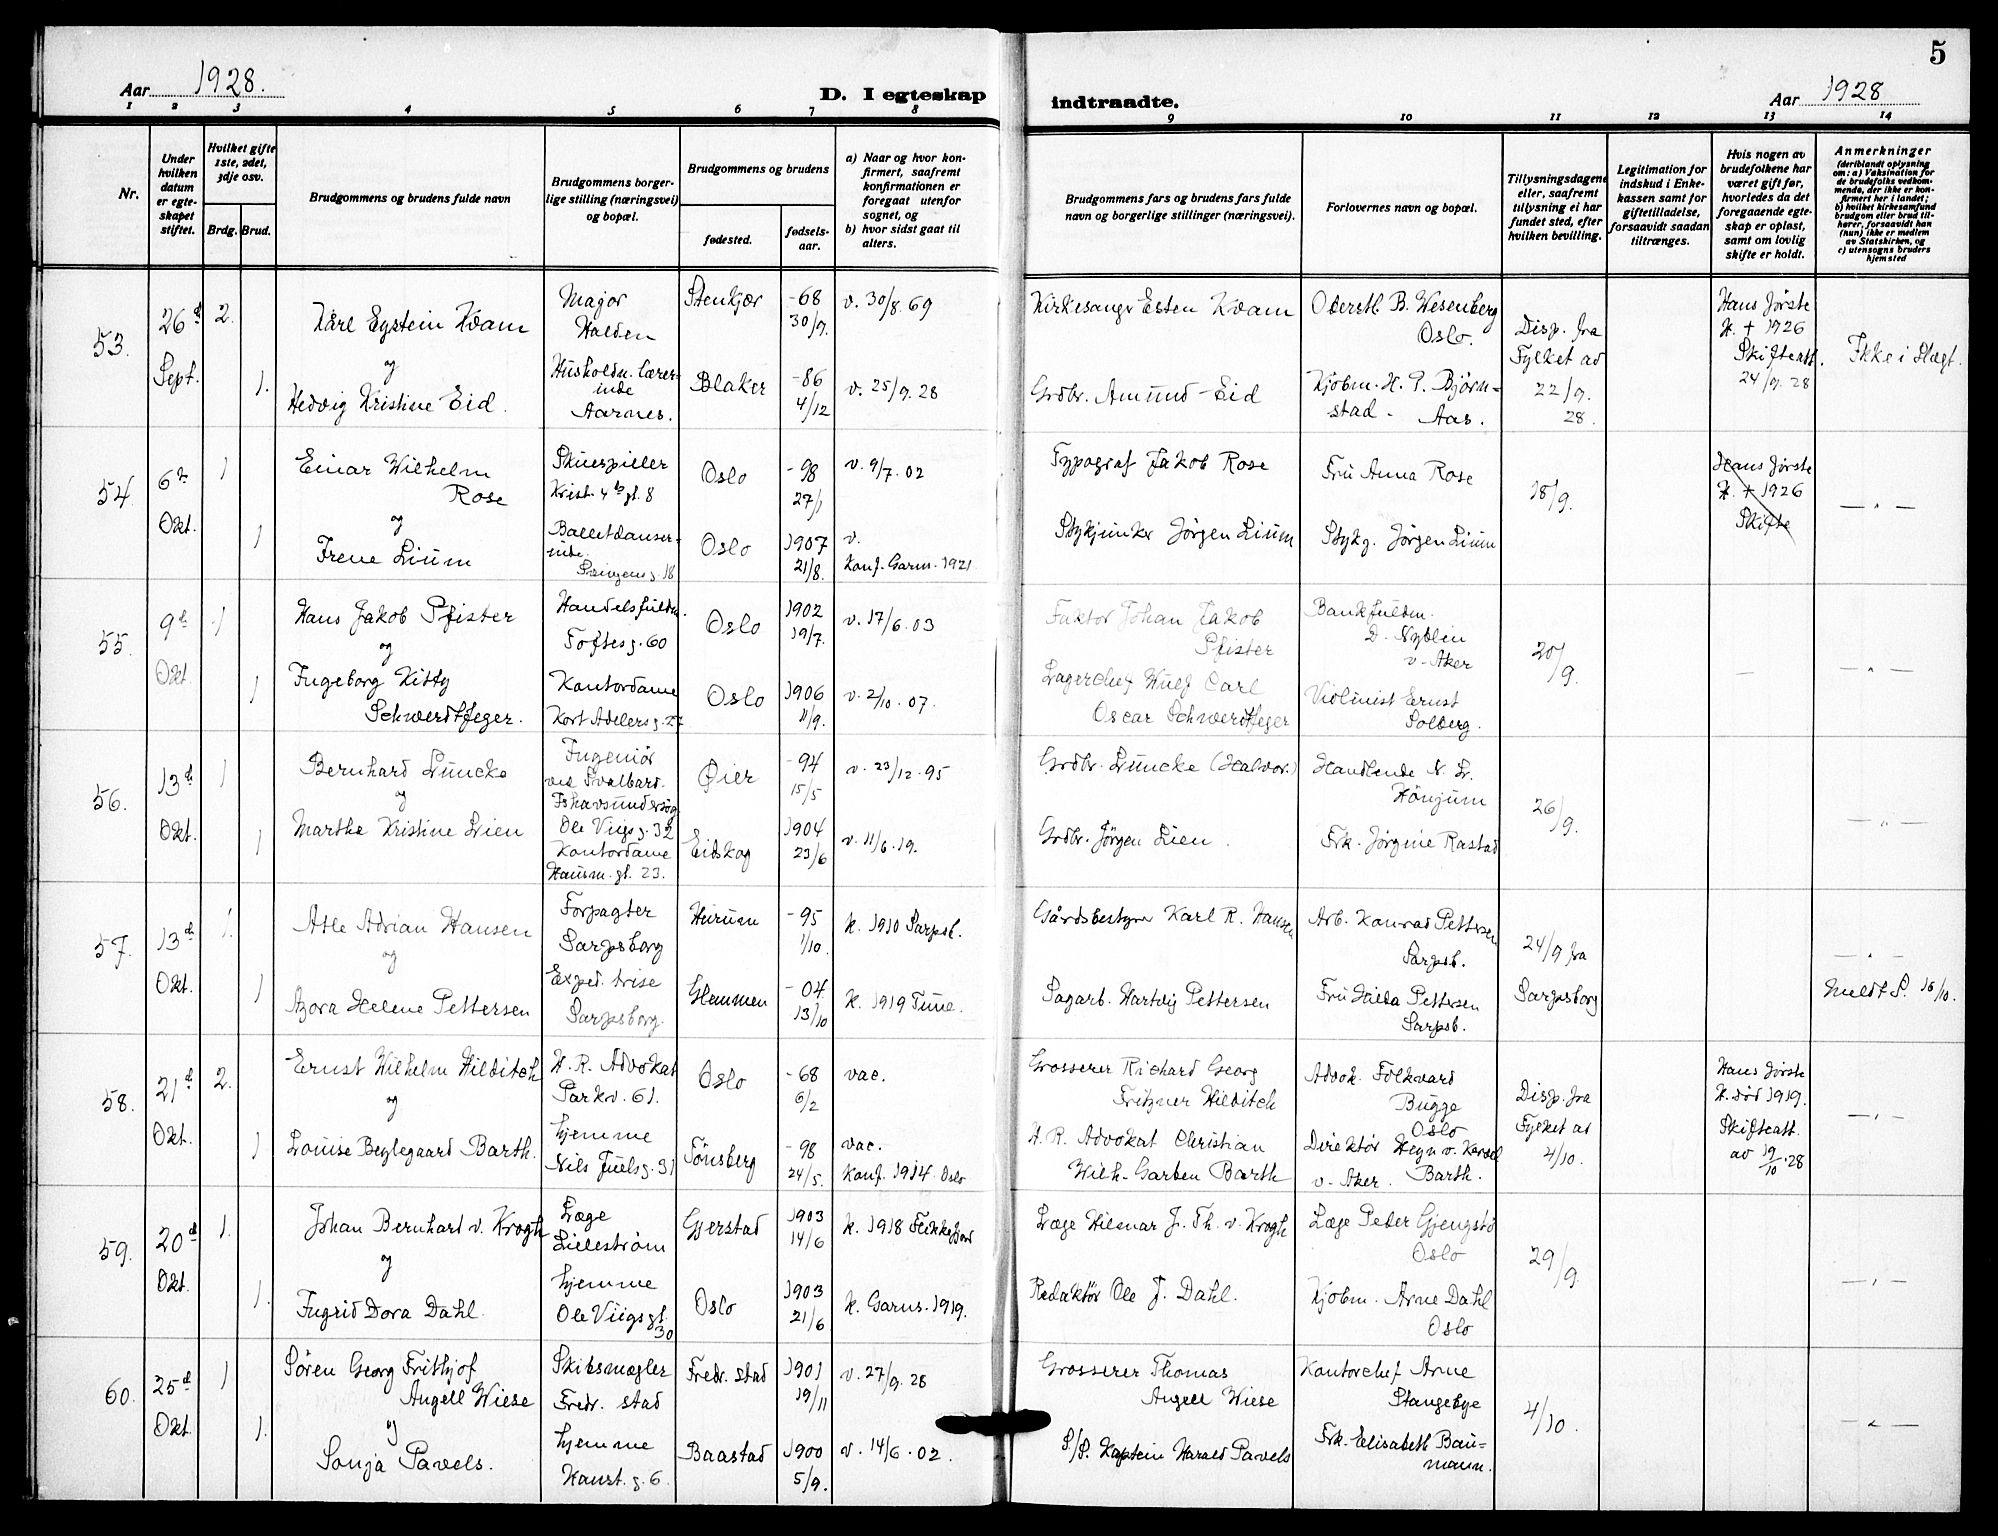 5
Aar 1928.
D. I egteskap
indtraadte.
Aar 1928
1 2 3 4 5 6 7 8 9 10 11 12 13 14
Nr.
Under hvilken datum er egteskapet stiftet.
Hvilket gifte 1ste, 2det, 3dje osv.
Brdg. Brud.
Brudgommens og brudens fulde navn
Brudgommens borgerlige stilling (næringsvei) og bopæl.
Brudgommens og brudens
fødested.
fødselsaar.
a) Naar og hvor konfirmert, saafremt konfirmationen er foregaat utenfor sognet, og
b) hvor sidst gaat til alters.
Brudgommens fars og brudens fars fulde navn og borgerlige stillinger (næringsvei).
Forlovernes navn og bopæl.
Tillysningsdagene eller, saafremt tillysning ei har fundet sted, efter hvilken bevilling.
Legitimation for indskud i Enkekassen samt for giftetilladelse, forsaavidt saadan tiltrænges.
Hvis nogen av brudefolkene har været gift før, hvorledes da det foregaaende egteskap er opløst, samt om lovlig skifte er holdt.
Anmerkninger
(deriblandt oplysning om: a) Vaksination for de brudefolks vedkommende, der ikke er konfirmert her i landet; b) hvilket kirkesamfund brudgom eller brud tilhører, forsaavidt han (hun) ikke er medlem av Statskirken, og c) utensogns bruders hjemsted
53. 26d Sept. 2.
Kårl Eystein Kvam
Major Halden
Stenkjær
-68 30/9.
v. 30/8.69
Kirkesangr Esten Kvam
Oberstl. B. Wesenberg Oslo.
Disp. fra Fylket av 22/9. 28.
Hans første H. + 1926 Skifteatt. 24/9. 28
Ikke i Slegt.
og
1.
Hedvig Kristine Eid.
Husholdn. lærerinde Aarnes.
Blaker
-86 4/12
v. 25/9. 28
Grdbr. Amund Eid
Kjøbm. H. P. Bjørnstad - Aas.
54. 6te Okt. 1
Einar Wilhelm Rose
Skuespiller Krist. 4des gt. 8
Oslo
-98 27/1
v. 9/7. 02
Typograf Jakob Rose
Fru Anna Rose
18/9.
Hans første H. + 1926 Skifte
—"—
og
1
Irene Lium
Balletdanserinde.
Oslo
1907 21/8.
v. Konf. Garn. 1921
Stykjunker Jörgen Lium
Stykj. Jörgen Lium
55. 9d Okt 1
Hans Jakob Pfister
Handelsfuldm. Toftesg. 60
Oslo
1902 19/7.
v. 17/6. 03
Faktor Johan Jakob Pfister
Bankfuldm. D. Nyblin v. Aker
20/9.
—
—"—
og
1
Ingeborg Kitty Schwerdtfeger.
Kontordame Kort Adelersg. 27
Oslo
1906 11/9.
v. 2/10. 07.
Lagerchef Wulf Carl Oscar Schwerdtfeger
Violinist Ernst Solberg.
56. 13d Okt. 1
Bernhard Luncke
Ingeniør ved Svalbard. Ishavsundersög. Ole Viigs g. 32
Øier
-94 15/5
v. 23/12. 95
Grdbr. Luncke (Halvor.)
Handlende N. L. Hönjum
26/9.
—"—
og
1
Marthe Kristine Lien
Kontordame Hausm. gt. 23.
Eidskog
1904 23/6
v. 11/6. 19.
Grdbr. Jörgen Lien.
Frk. Jörgine Rastad
57. 13d Okt. 1.
Asle Adrian Hansen
Forpagter Sarpsborg
Hurum
-95 1/10.
k. 1910 Sarpsb.
Gårdsbestyrer Karl R. Hansen
Arb. Konrad Pettersen Sarpsb.
24/9 fra Sarpsborg
—"—
Meldt S. 16/10.
og
1
Azora Helene Pettersen
Exped. trise Sarpsborg.
Glemmen
-04 13/10
k. 1919 Tune.
Sagarb. Hartvig Pettersen
Fru Hilda Pettersen Sarpsb.
58. 21d Okt. 2.
Ernst Wilhelm Hilditch
H. R. Advokat Parkv. 61.
Oslo
-68 6/2
vac.
Grosserer Richard Georg Fritzner Hilditch
Advok. Folkvard Bugge Oslo
Disp. fra Fylket av 4/10.
Hans første H. död 1919. Skifteatt. av 19/10. 28
—"—
og
1
Louise Beylegaard Barth.
hjemme Nils Juels g. 31
Tönsberg
-98 24/5.
vac. Konf. 1914. Oslo
H. R. Advokat Christian Wilh. Garben Barth
Direktör Heyn v. Kervel Barth. v. Aker.
59. 20d Okt. 1.
Johan Bernhard v. Krogh
Læge Lilleström
Gjerstad
1903 14/6
k. 1918 Flekkefjord
Læge Hilmar J. Th. v. Krogh
Læge Peder Gjengstö Oslo
29/9.
—"—
og
1.
Ingrid Dora Dahl.
hjemme Ole Viigs gt. 30
Oslo
1903 21/6
k. Garns. 1919.
Redaktör Ole J. Dahl.
Kjøbm. Arne Dahl Oslo
60. 25d Okt. 1
Sören Georg Frithjof Angell Wiese
Skibsmægler Fredr. stad
Fredr. stad
1901 19/11
v. 27/9. 28
Grosserer Thomas Angell Wiese
Kontorchef Arne Stangebye
4/10.
—"—
og
1.
Sonja Pavels.
hjemme Hanst. g. 6.
Baastad
1900 5/9.
v. 14/6. 02.
S/S. Kaptein Harald Pavels
Frk. Elisabeth Baumann.